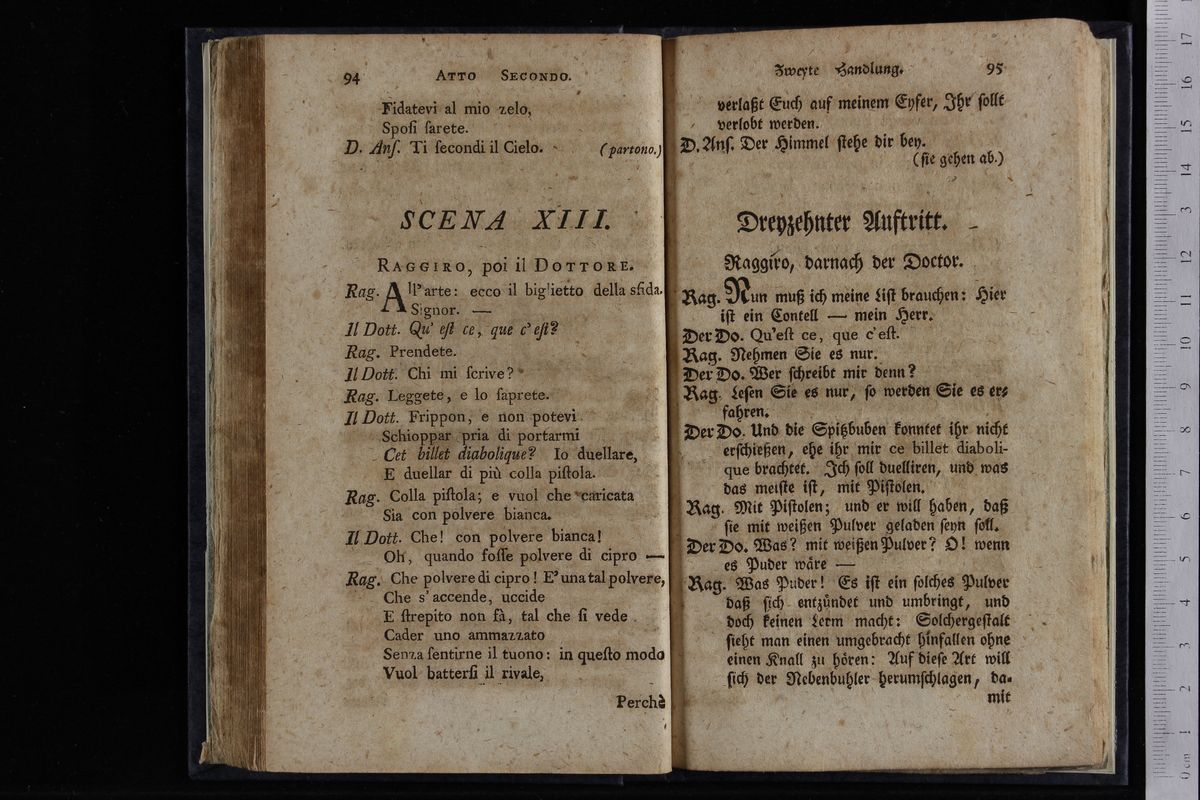 94 ATTO SECONDO.
Fidatevi al mio zelo,
Spoſi ſarete.
D. Anſ. Ti ſecondi il Cielo. (partono.)
SCENA XIII.
RAGGIRO, poi il DOTTORE.
Rag. All'arte: ecco il biglietto della sfida.
Signor. —
Il Dott. Qu' eſt ce, que c'eſt?
Rag. Prendete.
Il Dott. Chi mi ſcrive?
Rag. Leggete, e lo ſaprete.
Il Dott. Frippon, e non potevi
Schioppar pria di portarmi
Cet billet diabolique? Io duellare,
E duellar di più colla piſtola.
Rag. Colla piſtola; e vuol che caricata
Sia con polvere bianca.
Il Dott. Che! con polvere bianca!
Oh, quando foſſe polvere di cipro —
Rag. Che polvere di cipro! E' una tal polvere,
Che s'accende, uccide
E ſtrepito non fà, tal che ſi vede
Cader uno ammazzato
Senza ſentirne il tuono: in queſto modo
Vuol batterſi il rivale,
Perchè
Zweyte Handlung. 95
verlaßt Euch auf meinem Eyfer, Ihr ſollt
verlobt werden.
D. Anſ. Der Himmel ſtehe dir bey.
(ſie gehen ab.)
Dreyzehnter Auftritt.
Raggiro, darnach der Doctor.
Rag. Nun muß ich meine Liſt brauchen: Hier
iſt ein Contell — mein Herr.
Der Do. Qu'eſt ce, que c'eſt.
Rag. Nehmen Sie es nur.
Der Do. Wer ſchreibt mir denn?
Rag. Leſen Sie es nur, ſo werden Sie es er⸗
fahren.
Der Do. Und die Spitzbuben konntet ihr nicht
erſchießen, ehe ihr mir ce billet diaboli-
que brachtet. Ich ſoll duelliren, und was
das meiſte iſt, mit Piſtolen.
Rag. Mit Piſtolen; und er will haben, daß
ſie mit weißen Pulver geladen ſeyn ſoll.
Der Do. Was? mit weißen Pulver? O! wenn
es Puder wäre —
Rag. Was Puder! Es iſt ein ſolches Pulver
daß ſich entzündet und umbringt, und
doch keinen Lerm macht: Solchergeſtalt
ſieht man einen umgebracht hinfallen ohne
einen Knall zu hören: Auf dieſe Art will
ſich der Nebenbuhler herumſchlagen, da⸗
mit
17
16
15
14
13
12
11
10
9
8
7
6
5
4
3
2
1
0 cm